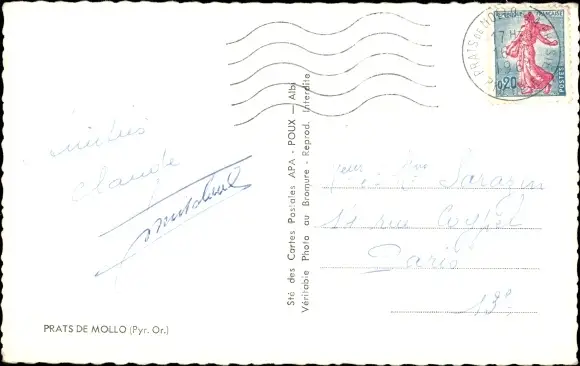 PRATS DE MOLLO
17H
FRANÇAISE
0,20
POSTES
Amitiés
Claude
Sté des Cartes Postales APA - POUX - Albi
Véritable Photo au Bromure - Reprod. Interdite
Sarazin
11 rue Coypel
Paris
13e
PRATS DE MOLLO (Pyr. Or.)